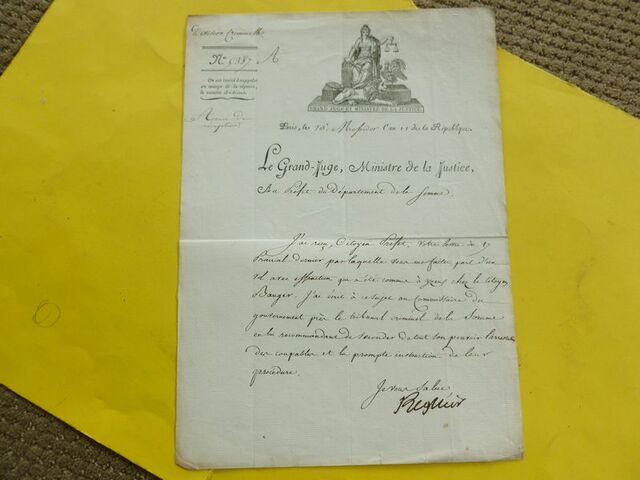 Division Criminelle
N° 9387 A
On est invité à rappeler
en marge de la réponse,
le numéro ci-dessus.
Accusé de
réception
GRAND JUGE ET MINISTRE DE LA JUSTICE
Paris, le 18 Messidor l'an 11 de la République.
Le Grand-Juge, Ministre de la Justice,
Au Préfet du Département de la Somme.
J'ai reçu, Citoyen Préfet, votre lettre du 17
Prairial dernier par laquelle vous me faites part d'un
vol avec effraction qui a été commis à chez le Citoyen
Bauger. J'ai écrit à ce sujet au Commissaire du
gouvernement près le tribunal criminel de la Somme
en lui recommandant de seconder de tout son pouvoir l'arrestation
des coupables et la prompte instruction de leur
procédure.
Je vous salue
Regnier